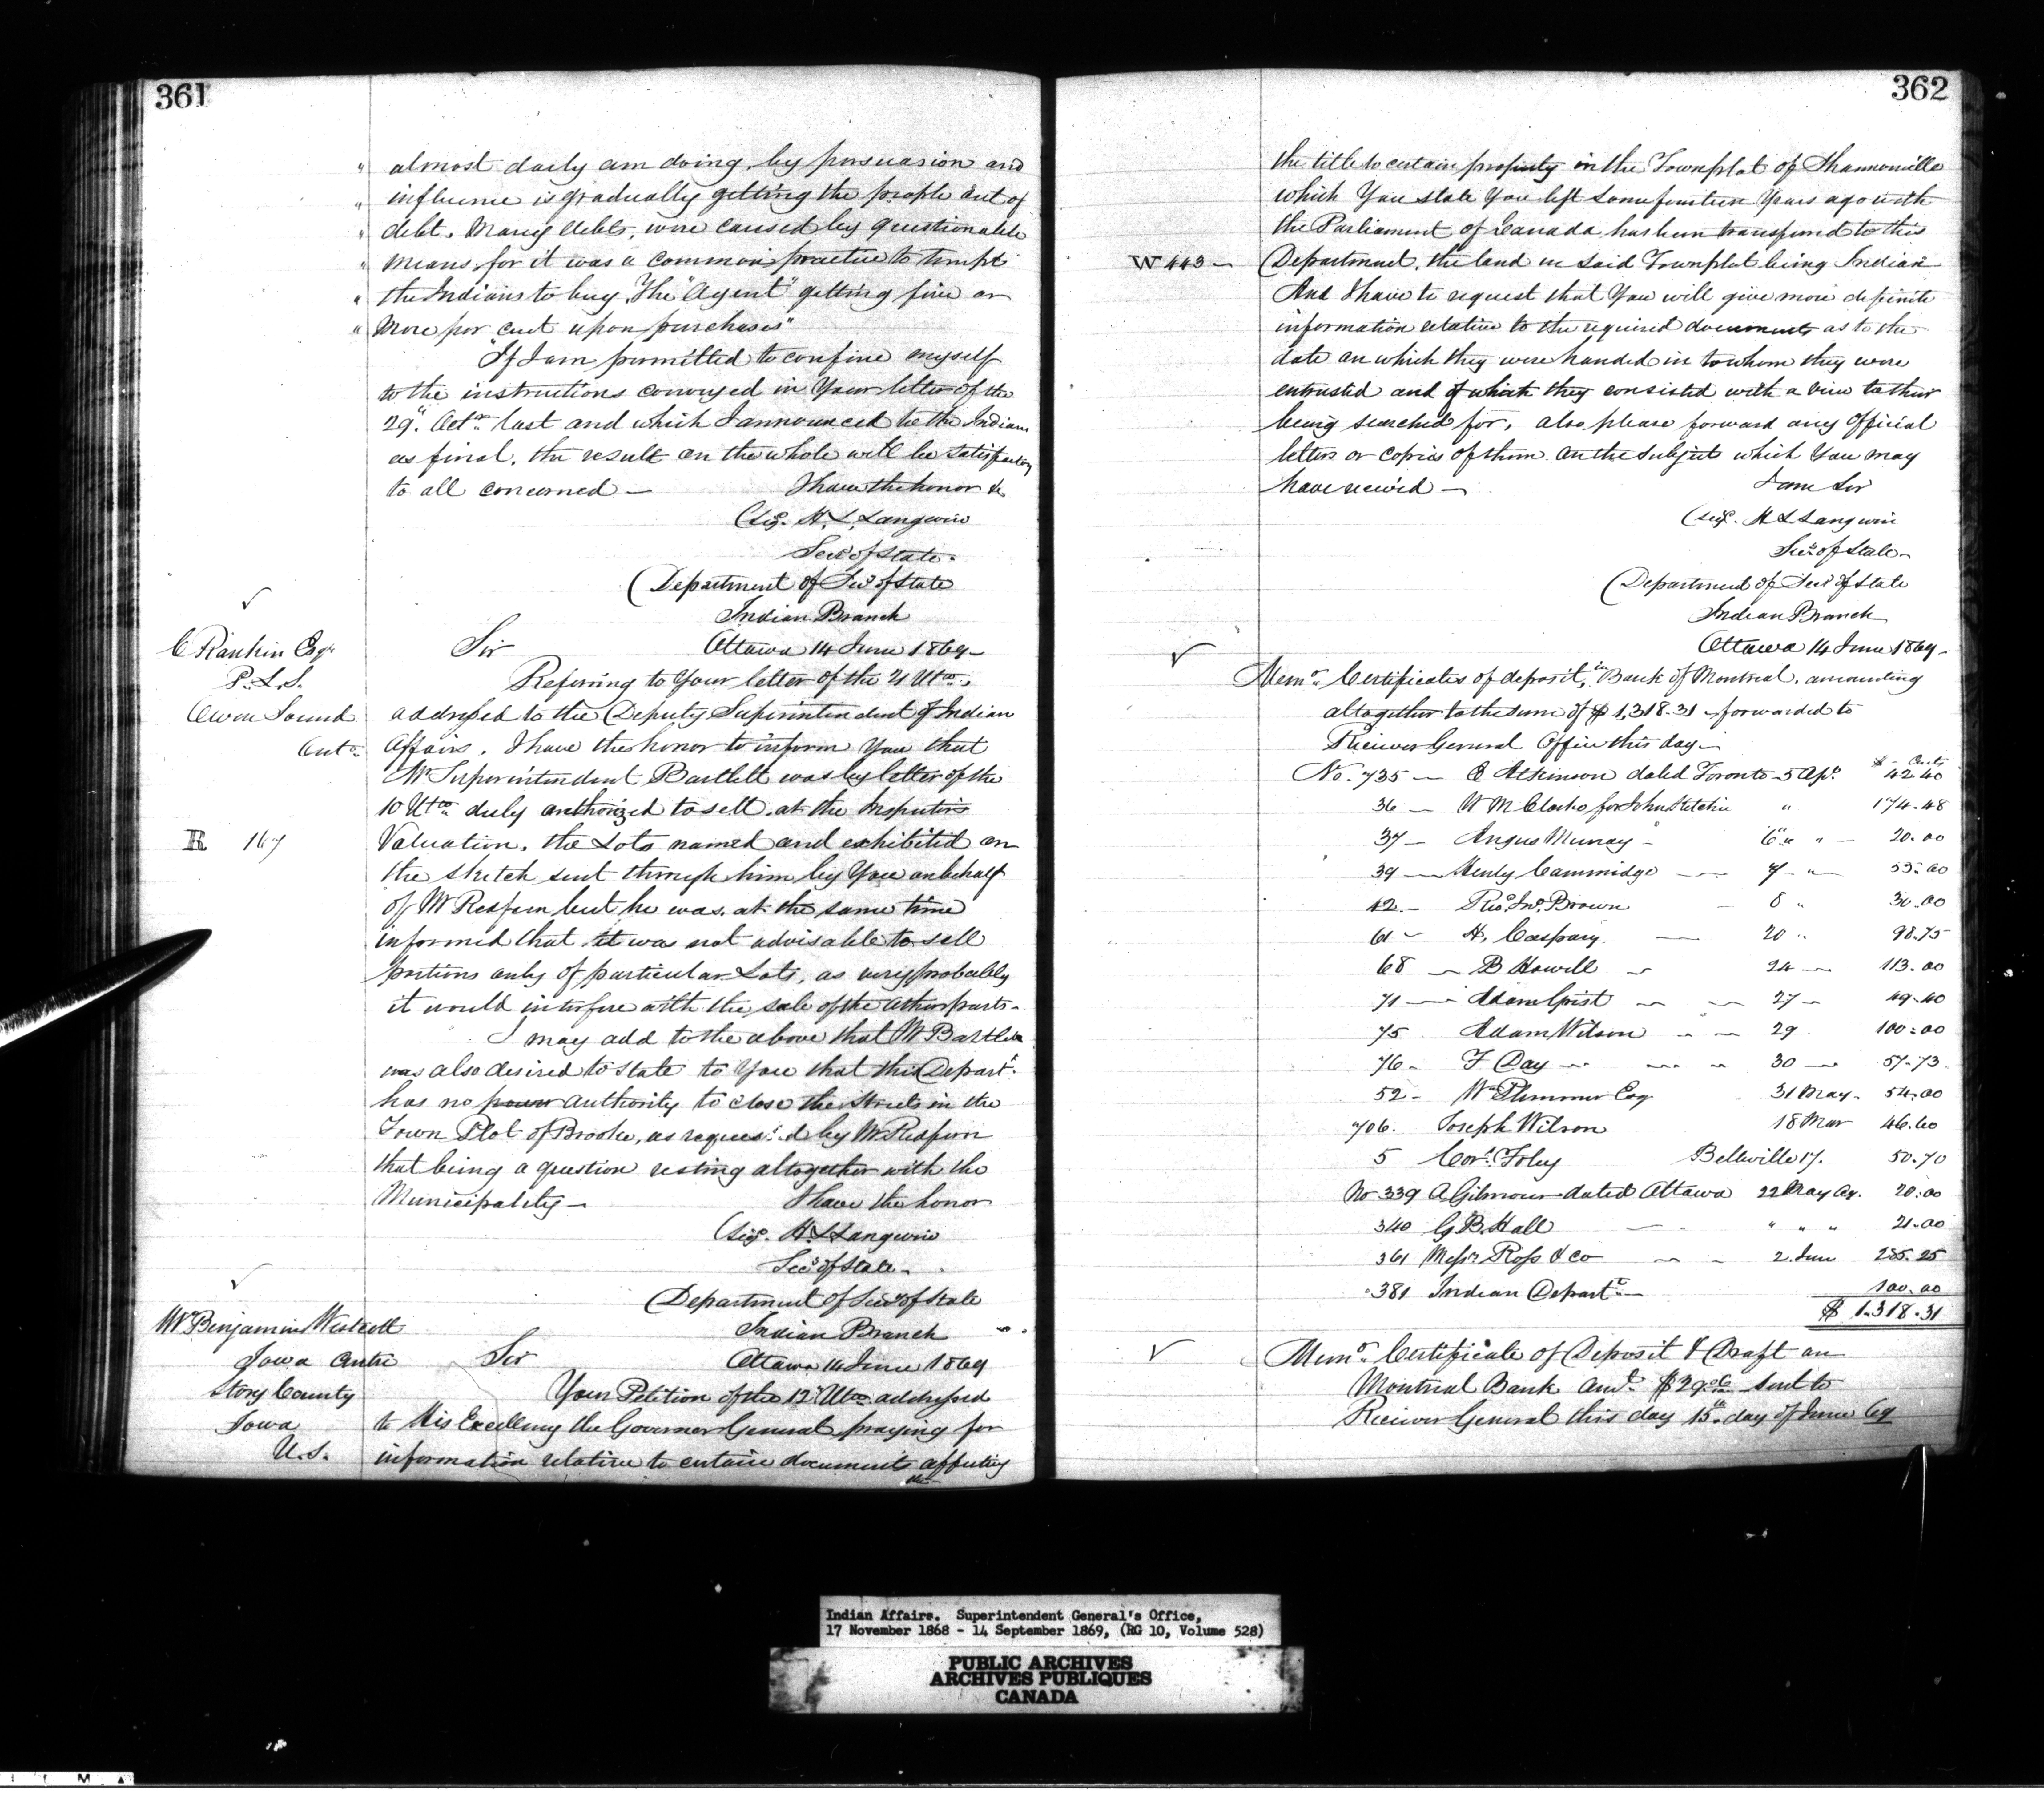 361
" almost daily am doing, by persuasion and
" influence is gradually getting the people out of
" debt. Many debts, were caused by questionable
" means, for it was a common practice to tempt
" the Indians to buy, The "Agent" getting five or
" more per cent upon purchases"
"If I am permitted to confine myself
to the instructions conveyed in Your letter of the
29" Octr last and which I announced to the Indians
as final, the result on the whole will be satisfactory
to all concerned — I have the honor &c
(Sig. H. L. Langevin
Secy of State.
(Department of Secy of State
Indian Branch
C Rankin Esqr Sir Ottawa 14 June 1869 —
P. L. S. Referring to Your letter of the 21 Ulto,
Owen Sound addressed to the Deputy Superintendent of Indian
Onto Affairs. I have the honor to inform You that
Mr Superintendent Bartlett was by letter of the
10 Ulto duly authorized to sell, at the Inspector's
R 167 Valuation, the Lots named and exhibited on
the sketch sent through him by You on behalf
of Mr Redfern but he was, at the same time
informed that it was not advisable to sell
portions only of particular Lots, as very probably
it would interfere with the sale of the other parts —
I may add to the above that Mr Bartlett
was also desired to state to You that this Departt
has no power authority to close the streets in the
Town Plot of Brooke, as requested by Mr Redfern
that being a question resting altogether with the
Municipality — I have the honor
(Sig. H. L Langevin
Secy of State —
(Department of Secy of State
Mr Benjamin Westcott Indian Branch
Iowa Centre Sir Ottawa 14 June 1869
Story County Your Petition of the 12 Ulto addressed
Iowa to His Excellency the Governor General praying for
U.S. information relative to certain documents affecting
the
362
the title to certain property in the Townplot of Shannonville
which You state You left some fourteen Years ago with
the Parliament of Canada has been transferred to this
W 443 — Department, the land in said Townplot being Indian
And I have to request that You will give more definite
information relative to the required documents as to the
date on which they were handed in to whom they were
entrusted and of which they consisted with a view to their
being searched for, also please forward any Official
letters or copies of them on the subject which You may
have received — I am Sir
(Sig. H L Langevin
Secy of State —
(Department of Secy of State
Indian Branch
Ottawa 14 June 1869 —
Memo. Certificates of deposit, in Bank of Montreal, amounting
altogether to the sum of $1,318.31 forwarded to
Receiver General Office this day —
$ - Cents
No. 735 — E Atkinson dated Toronto 5 Apl 42.40
36 — W M Clarke for John Ritchie " 174.48
37 — Angus Murray — 6" " " — 20.00
39 — Henly Cammidge — 7 " 55.00
42 — Revd Jno. Brown — 8 " 30.00
61 — H. Caspary — 20 " 98.75
68 — B Howill — 24 — 113.00
71 — Adam Crist — 27 — 49.40
75 Adam Wilson " — 29 100.00
76 — F Day — 30 — 57.73
52 — Wm Plummer Esq 31 May — 54.00
706. Joseph Wilson 18 Mar 46.60
5 Cors. Foley Belleville 17. 50.70
No 339 A Gilmour dated Ottawa 22 May 69. 20.00
340 G B. Hall — " " " 21.00
361 Messrs Ross & Co — 2 June 285.25
381 Indian Departt — 100.00
$ 1.318.31
Memo. Certificate of Deposit & Draft on
Montreal Bank amt. $29.06 sent to
Receiver General this day 15th day of June 69
Indian Affairs. Superintendent General's Office,
17 November 1868 - 14 September 1869, (RG 10, Volume 528)
PUBLIC ARCHIVES
ARCHIVES PUBLIQUES
CANADA